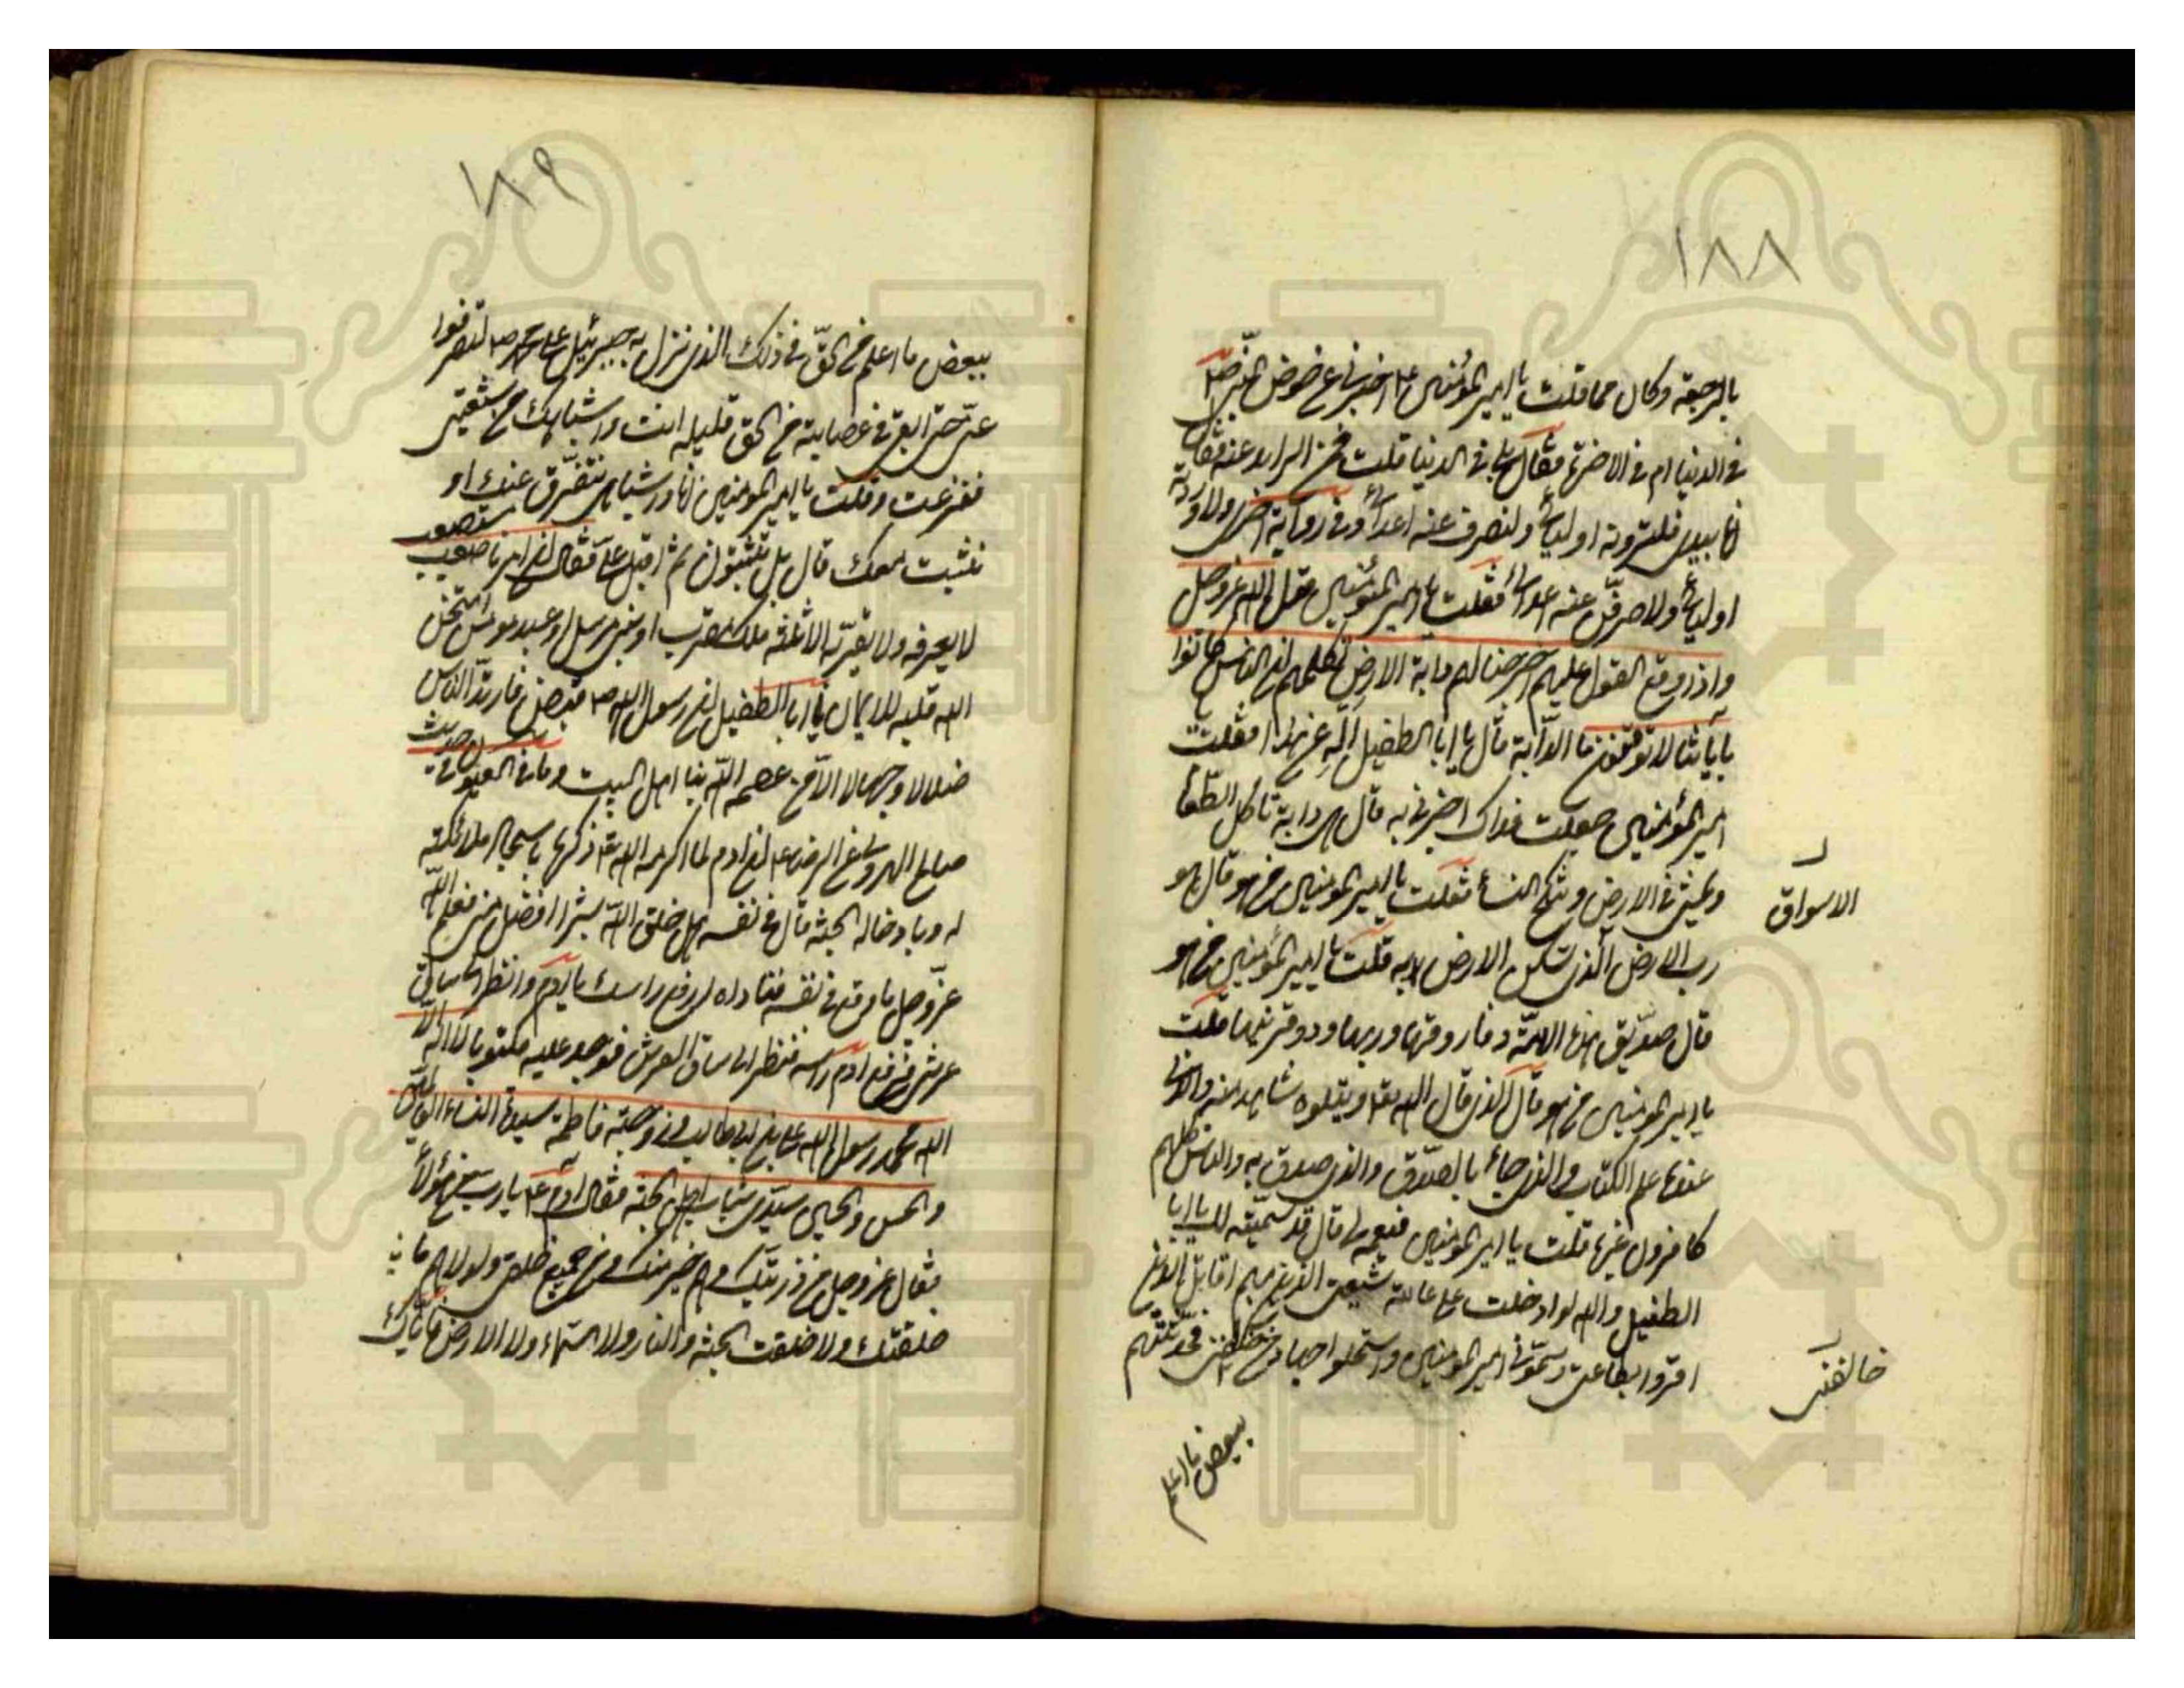 ١٨٨
بالرجعة وكان مما قلت يا امير المؤمنين ع اخبرنى عن حوض النبى ص
فى الدنيا ام فى الاخرة فقال بل فى الدنيا قلت فمن الزايد عنه فقال
انا بيدى فلترونه اوليائى ولنصرفن عنه اعدائى وفى رواية اخرى ولاوردنه
اوليائى ولاصرفن عنه اعدائى فقلت يا امير المؤمنين قول الله عز وجل
واذا وقع القول عليهم اخرجنا لهم دابة الارض تكلمهم ان الناس كانوا
باياتنا لا توقنون ما الدابة قال يا ابا الطفيل اله عن هذا فقلت
امير المؤمنين جعلت فداك اخبرنى به قال هى دابة تاكل الطعام
وتمشى فى الارض وتنكح النساء فقلت يا امير المؤمنين من هو قال هو
الاسواق
رب الارض الذى تسكن الارض به قلت يا امير المؤمنين من هو
قال صديق هذه الامة وفاروقها وربها وذو قرنيها قلت
يا امير المؤمنين من هو قال الذى قال الله تع ويتلوه شاهد منه والذى
عنده علم الكتاب والذى جاء بالصدق والذى صدق به والناس كلهم
كافرون غيرى قلت يا امير المؤمنين فسمه لى قال قد سميته لك يا ابا
الطفيل والله لو ادخلت على عامة شيعتى الذين بهم اقاتل الذين
اقروا بطاعتى وسمونى امير المؤمنين واستحلوا جهاد من فحدثتهم
خالفنى
ببعض ما اعلم
١٨٩
ببعض ما اعلم من الحق فى ذلك الذى نزل به جبرئيل على محمد ص لتفرقوا
عنى حتى ابقى فى عصابة من الحق قليلة انت واشباهك من شيعتى
ففزعت وقلت يا امير المؤمنين انا واشباهى نتفرق عنك او
نثبت معك قال بل تثبتون ثم اقبل على فقال ان امرنا صعب مستصعب
لا يعرفه ولا يقربه الا ثلثة ملك مقرب او نبى مرسل او عبد مؤمن امتحن
الله قلبه للايمان يا ابا الطفيل ان رسول الله ص قبض فارتد الناس
ضلالا وجهالا الا من عصمه الله بنا اهل البيت وما فى العيون من حديث
صالح الهروى عن الرضا ع ان ادم لما اكرمه الله تع ذكره باسجاد ملائكته
له وبادخاله الجنة قال فى نفسه هل خلق الله بشرا افضل منى فعلم الله
عز وجل ما وقع فى نفسه فناداه ارفع راسك يا ادم وانظر الى ساق
عرشى فرفع ادم راسه فنظر الى ساق العرش فوجد عليه مكتوبا لا اله الا
الله محمد رسول الله على بن ابى طالب وزوجته فاطمة سيدة النساء العالمين
والحسن والحسين سيدى شباب اهل الجنة فقال ادم ع يا رب من هؤلاء
فقال عز وجل من ذريتك وهم خير منك ومن جميع خلقى ولولا هم ما
خلقتك ولا خلقت الجنة والنار ولا السماء ولا الارض فاياك